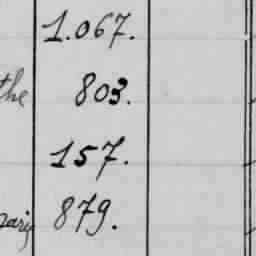 1.067.
the 803.
157.
879.